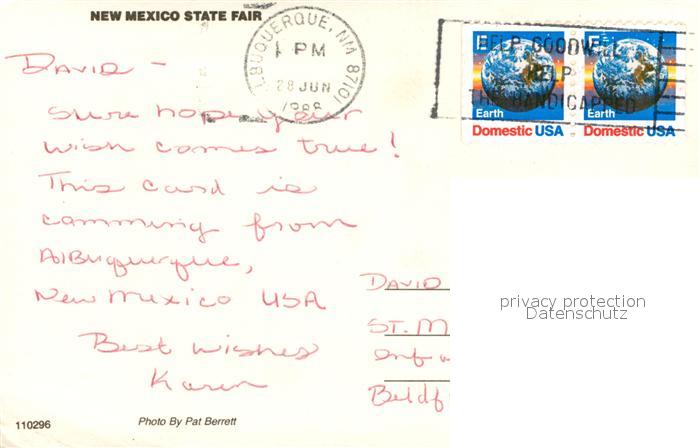 NEW MEXICO STATE FAIR
ALBUQUERQUE, NM 87101
1 PM
28 JUN
1988
HELP GOODWILL
HELP
THE HANDICAPPED
E
Earth
Domestic USA
E
Earth
Domestic USA
David -
Sure hope your
wish comes true!
This card is
comming from
Albuquerque,
New Mexico USA
Best Wishes
Karen
David
St. M
privacy protection
Datenschutz
110296
Photo By Pat Berrett